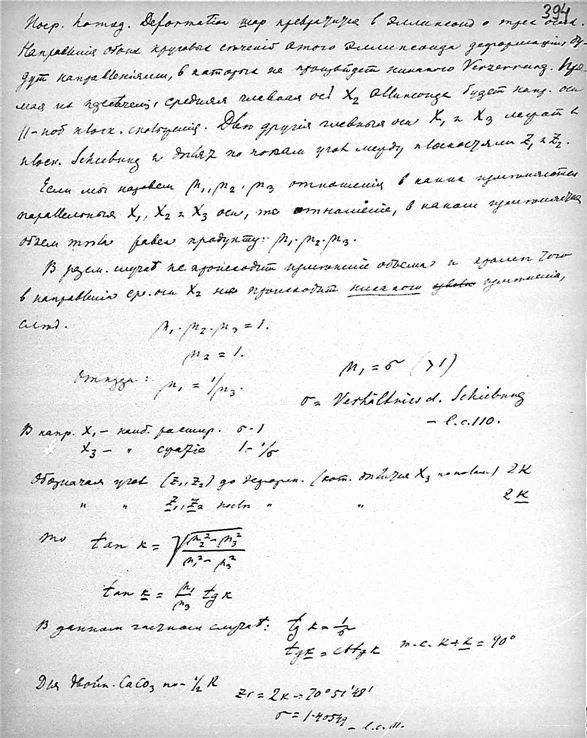 394
Поср. homog. Deformation шар превратится в эллипсоид о трех осях.
Направления обоих круговых сечений этого эллипсоида деформации бу-
дут направлениями, в которых не произойдет никакого Verzerrung. Пря-
мая их пересечения, средняя главная ось X2 эллипсоида будет напр. оси
//-ной плоск. скольжения. Две другия главныя оси X1 и X3 лежат в
плоск. Schiebung и делят по полам угол между плоскостями Z1 и Z2.
Если мы назовем μ1, μ2, μ3 отношения в каких изменяются
параллельныя X1, X2 и X3 оси, то отношение, в каком изменяется
объем тела равен продукту: μ1·μ2·μ3.
В разсм. случае не происходит изменение объема и кроме того
в направлении ср. оси X2 не происходит никакого изменения,
след.
μ1·μ2·μ3 = 1.
μ2 = 1.
Откуда: μ1 = 1/μ3.
μ1 = σ (>1)
σ = Verhältniss d. Schiebung
– l.c. 110.
В напр. X1 – наиб. расшир. σ-1
X3 – " сжатие 1-1/σ
Обозначая угол (Z1, Z2) до деформ. (кот. делится X3 пополам) 2κ
" " Z1, Z2 после " " 2κ
то tan κ = √(μ2²-μ3² / μ1²-μ2²)
tan κ = μ1/μ3 tg κ
В данном частном случае: tg κ = 1/σ
tg κ = cotg κ т.е. κ+κ = 90°
Для двойн. CaCO3 по -1/2 R
2κ = 70°51'48'
σ = 1.40549 – l.c. 111.